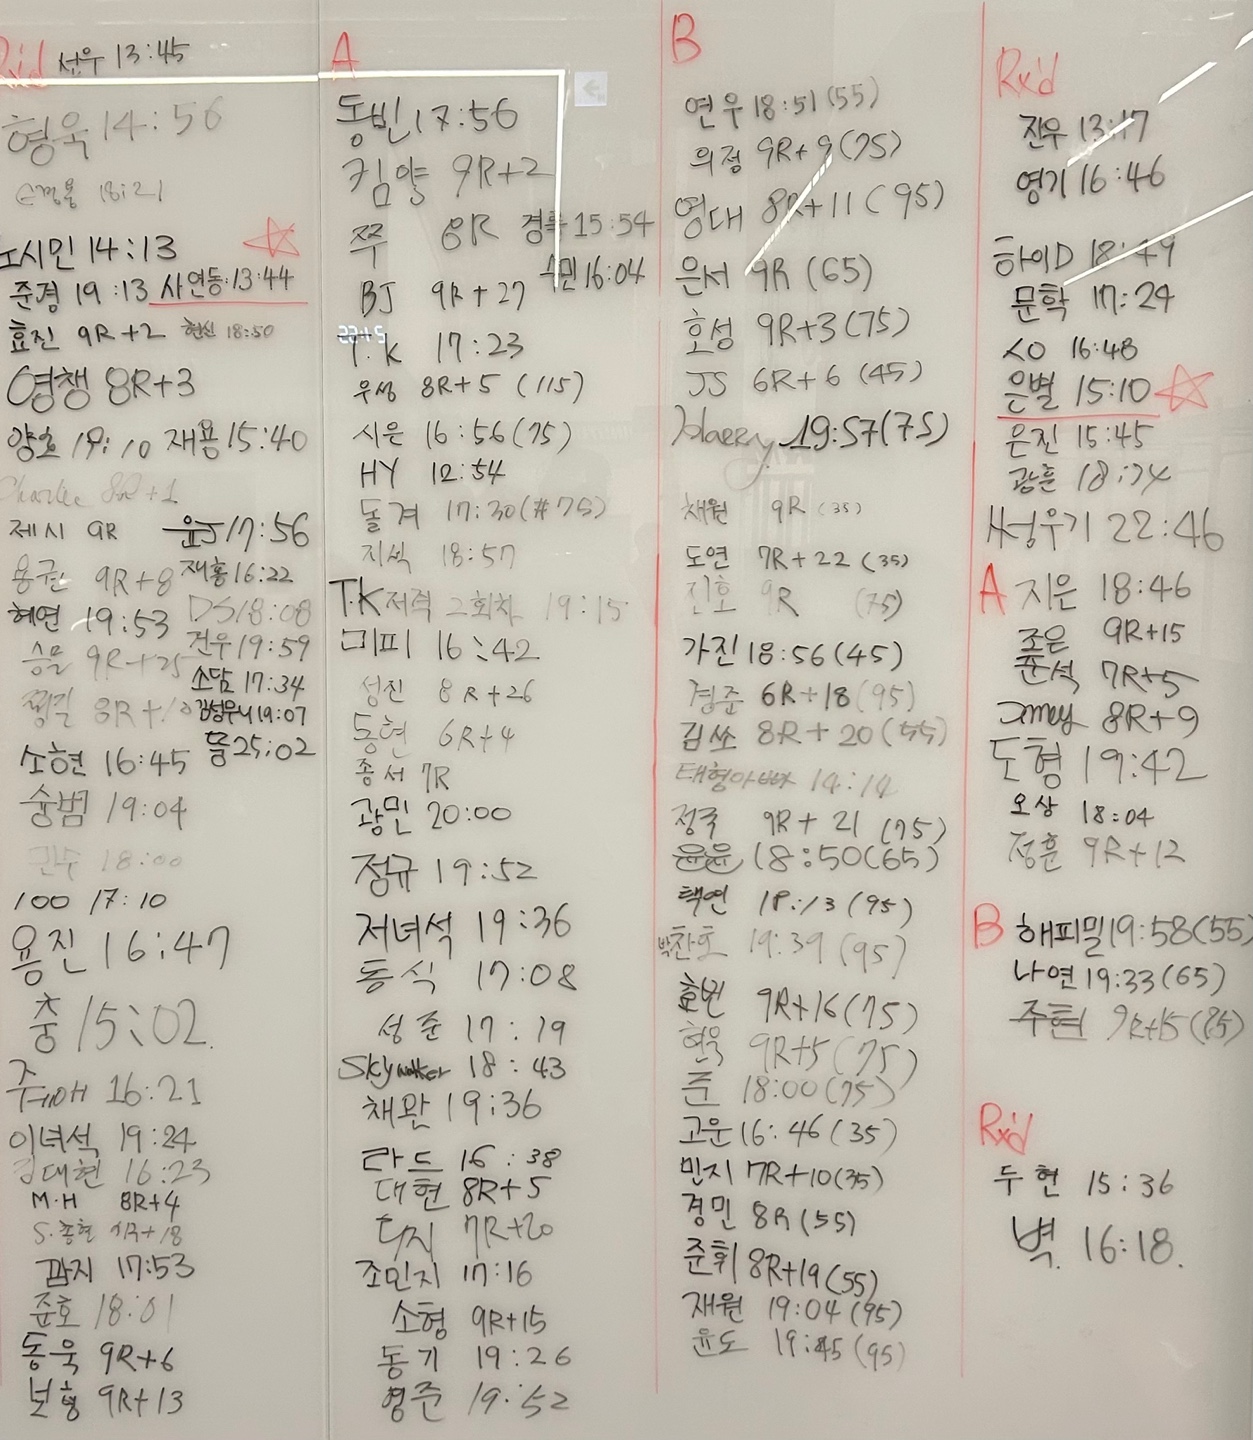 Rx'd 선우 13:45
형욱 14:56
18:21
노시민 14:13
준경 19:13 사연동:13:44
효진 9R+2 현신 18:50
영챙 8R+3
양호 19:10 재용 15:40
Charlie 8R+1
제시 9R 윤J 17:56
용권 9R+8 재홍 16:22
혜연 19:53 DS 18:08
승물 9R+25 건우 19:59
소담 17:34
8R+10 김성우니 19:07
소현 16:45 뚱 25:02
숭범 19:04
18:00
100 17:10
용진 16:47
충 15:02
16:21
이녀석 19:24
김대현 16:23
M.H 8R+4
S.총현 7R+18
깜지 17:53
준호 18:01
동욱 9R+6
보형 9R+13
A
동빈 17:56
킴양 9R+2
쭈 8R 경록 15:54
BJ 9R+27 수민 16:04
T.K 17:23
우성 8R+5 (115)
시은 16:56(75)
HY 12:54
돌겨 17:30(#75)
지석 18:57
T.K 저격 2회차 19:15
미피 16:42
성진 8R+26
동현 6R+4
종서 7R
광민 20:00
정규 19:52
저녀석 19:36
동식 17:08
성준 17:19
Skywalker 18:43
채완 19:36
라드 16:38
대현 8R+5
7R+20
조민지 17:16
소형 9R+15
동기 19:26
영준 19:52
B
연우 18:51(55)
의정 9R+9(75)
영대 8R+11(95)
은서 9R (65)
호성 9R+3(75)
JS 6R+6 (45)
Harry 19:57(75)
채원 9R (35)
도연 7R+22 (35)
진호 9R (75)
가진 18:56(45)
경준 6R+18(95)
김쏘 8R+20(55)
태형아빠 14:14
정국 9R+21 (75)
윤윤 18:50(65)
택연 18:13(95)
박찬호 19:39 (95)
효빈 9R+16(75)
현욱 9R+5(75)
준 18:00(75)
고운 16:46(35)
민지 7R+10(35)
경민 8R(55)
준휘 8R+19(55)
재원 19:04(95)
윤도 19:45(95)
Rx'd
진우 13:17
영기 16:46
하이D 18:49
문학 17:24
ㅅㅇ 16:48
은별 15:10
은진 15:45
광훈 18:34
써성우기 22:46
A 지은 18:46
조은 9R+15
준석 7R+5
Jmey 8R+9
도형 19:42
오상 18:04
정훈 9R+12
B 해피밀 19:58(55)
나연 19:33(65)
주현 9R+15(85)
Rx'd
두현 15:36
벽 16:18.